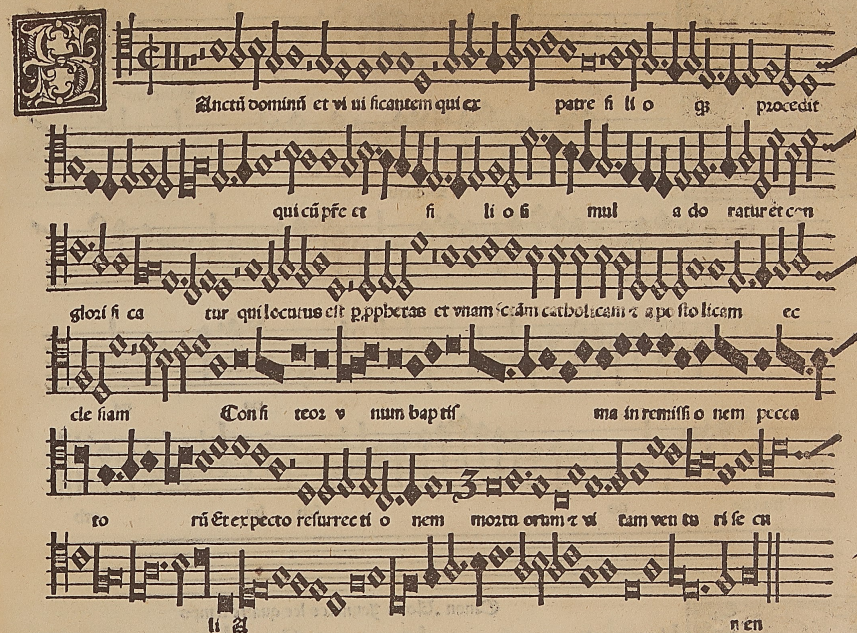 SAnctū dominū et vi ui ficantem qui ex patre fi li o qꝫ procedit
qui cū pr̄e et fi li o si mul a do ratur et con
glori fi ca tur qui locutus est per ꝓphetas et vnam sctām catholicam ⁊ apo sto licam ec
cle siam Con fi teor v num bap tis ma in remissi o nem pecca
to rū Et expecto resurrec ti o nem mortu orum ⁊ vi tam ven tu ri se cu
li A men